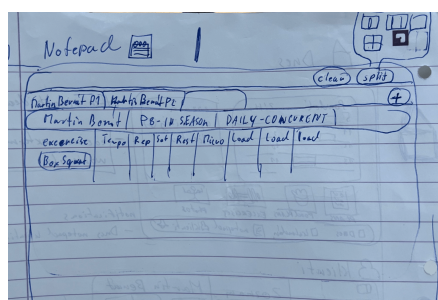 Notepad
clean split
Martin Bernut P1 Martin Bernut P2 +
Martin Bernut PB-IN SEASON DAILY-CONCURENT
excercise Tempo Rep Set Rest Micro Load Load load
Box Squat